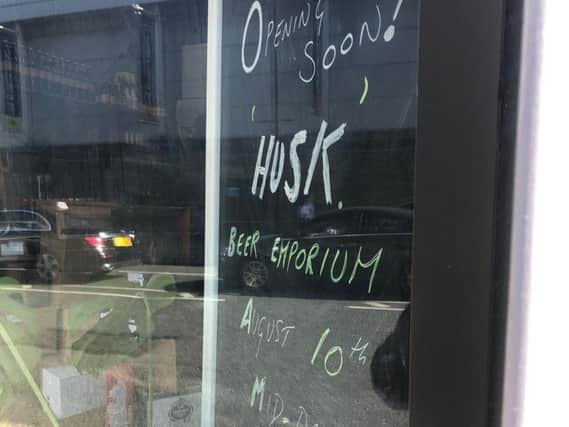 OPENING
SOON!
'HUSK.'
BEER EMPORIUM
AUGUST 10th